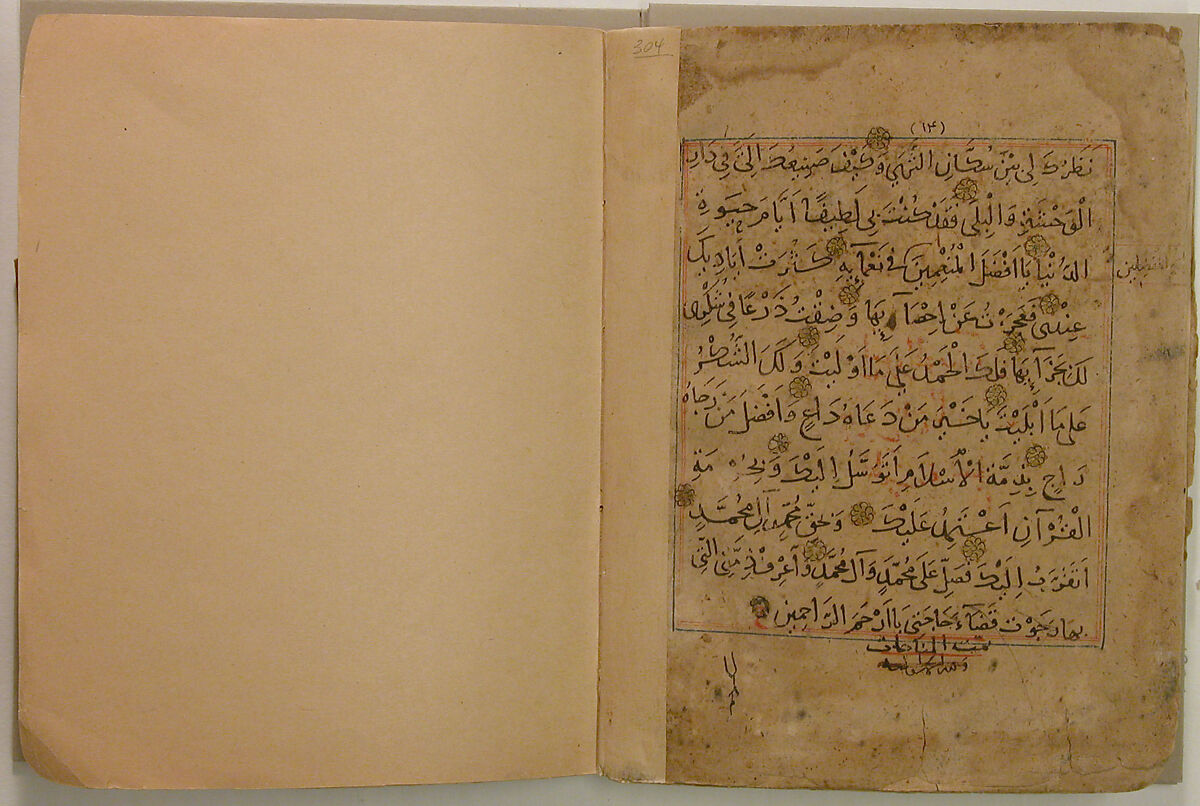 304
(۱۴)
نَظَرُكَ لِي بَيْنَ سُكَّانِ الثَّرَى وَكَيْفَ صَنِيعُكَ اِلَىَّ فِى دَارِ
الْوَحْشَةِ وَالْبِلَى فَقَدْ كُنْتَ بِى لَطِيفًا اَيَّامَ حَيٰوةِ
الدُّنْيَا يَا اَفْضَلَ الْمُنْعِمِينَ فِى نَعْمَآئِهِ كَثُرَتْ اَيَادِيكَ
المفضلين
عِنْدِى فَعَجَزْتُ عَنْ اِحْصَآئِهَا وَضِقْتُ ذَرْعًا فِى شُكْرِى
لَكَ بِجَزَآئِهَا فَلَكَ الْحَمْدُ عَلَى مَا اَوْلَيْتَ وَلَكَ الشُّكْرُ
عَلَى مَا اَبْلَيْتَ يَا خَيْرَ مَنْ دَعَاهُ دَاعٍ وَاَفْضَلَ مَنْ رَجَاهُ
رَاجٍ بِذِمَّةِ الْاِسْلَامِ اَتَوَسَّلُ اِلَيْكَ وَبِحُرْمَةِ
الْقُرْآنِ اَعْتَمِدُ عَلَيْكَ وَبِحَقِّ مُحَمَّدٍ وَآلِ مُحَمَّدٍ
اَتَقَرَّبُ اِلَيْكَ فَصَلِّ عَلَى مُحَمَّدٍ وَآلِ مُحَمَّدٍ وَاعْرِفْ ذِمَّتِىَ الَّتِى
بِهَا رَجَوْتُ قَضَآءَ حَاجَتِى يَا اَرْحَمَ الرَّاحِمِينَ
تمت المناجات